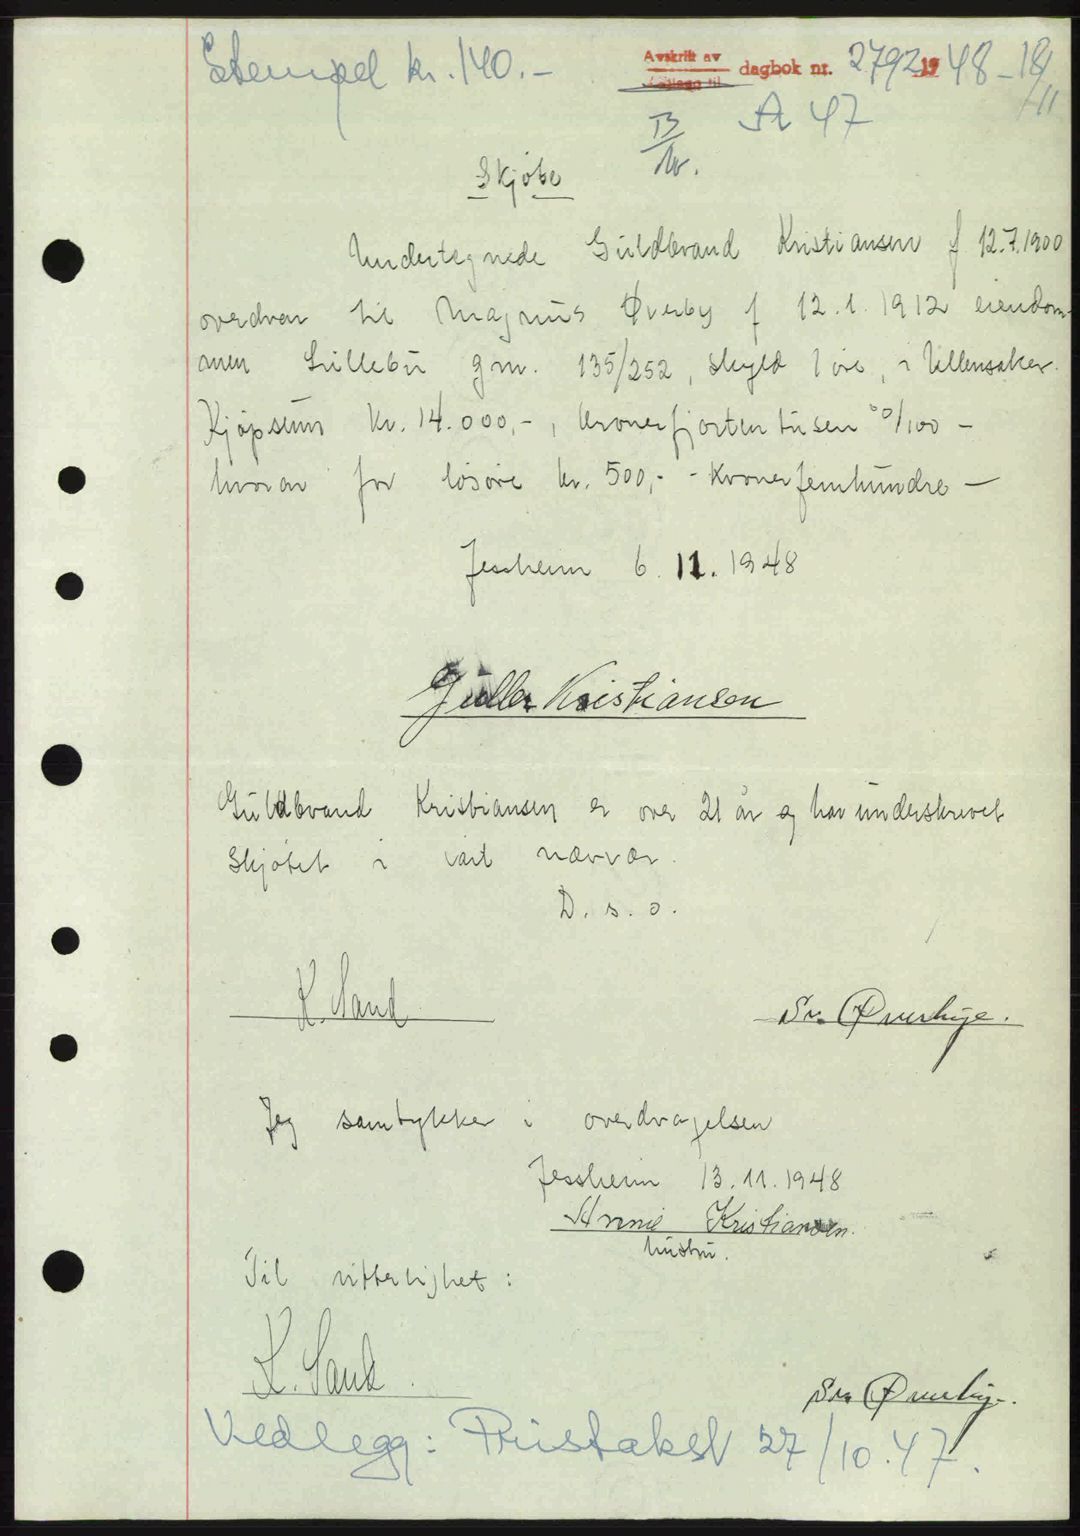 Stempel kr. 140.-
Avskrift av dagbok nr. 2792 1948 - 18/11
A 47
Skjøte
Undertegnede Guldbrand Kristiansen f 12.7.1900
overdrar til Magnus Øverby f 12.1.1912 eiendom-
men Lillebu gnr. 135/252, skyld 1 øre, i Ullensaker.
Kjøpsum kr. 14.000,-, kronerfjortentusen 00/100 -
hvorav for løsøre kr. 500,- - kronerfemhundre -
Jessheim 6. 11. 1948
Guller Kristiansen
Guldbrand Kristiansen er over 21 år og har underskrevet
skjøtet i vårt nærvær.
D. s. o.
K. Sand
Sv. Øverbye.
Jeg samtykker i overdragelsen
Jessheim 13.11.1948
Annie Kristiansen.
hustru.
Til vitterlighet:
K. Sand.
Sv. Øverbye.
Vedlegg: Pristakst 27/10.47.